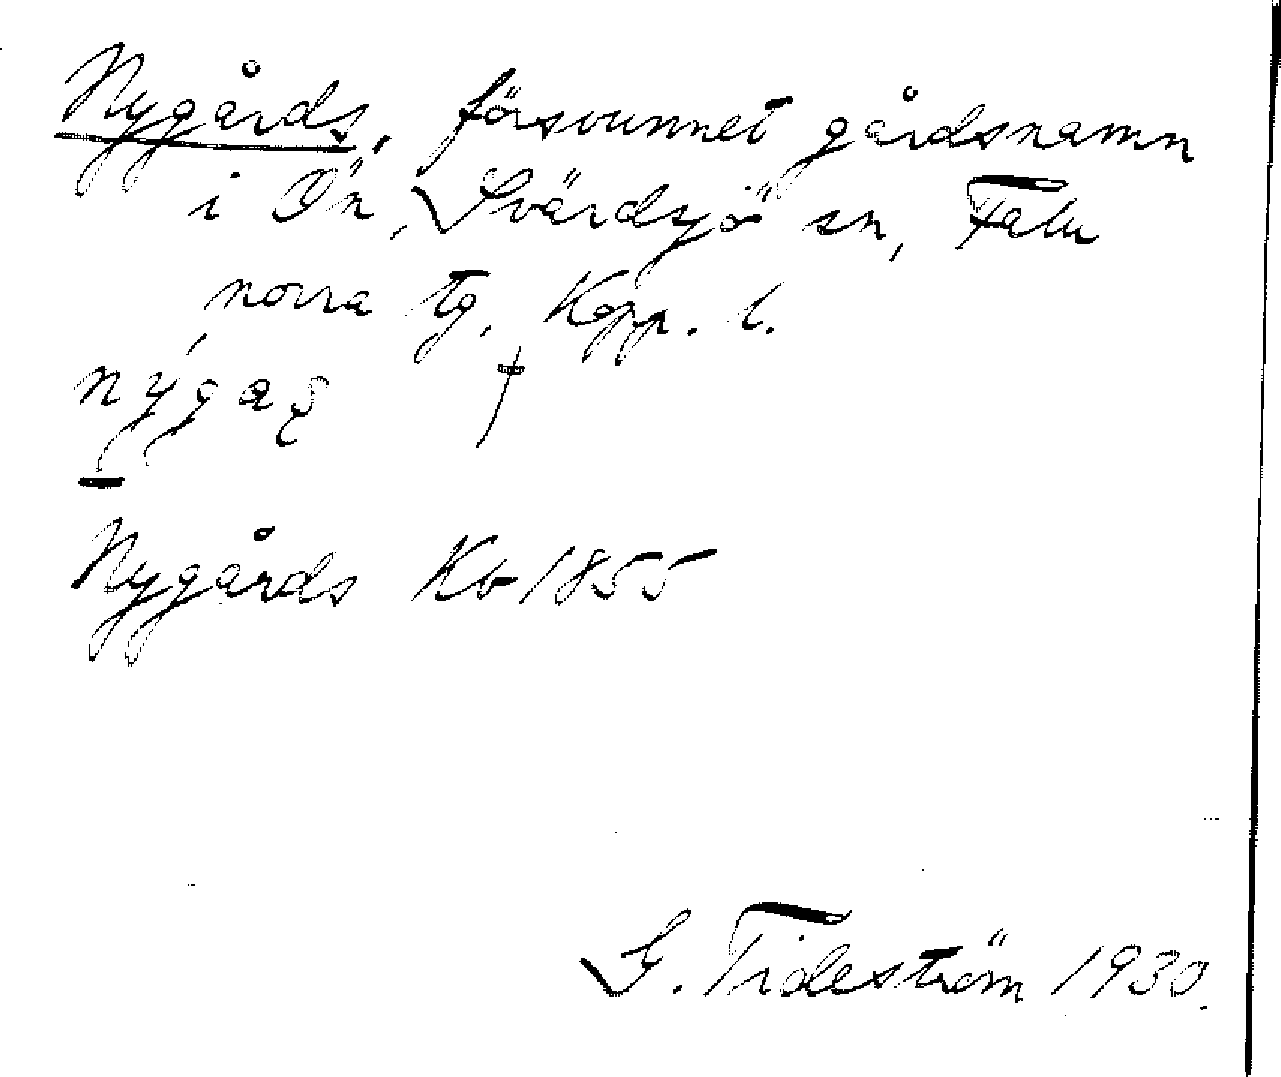 Nygårds, försvunnet gårdsnamn
i Ön, Svärdsjö sn, Falu
norra tg, Kopp. l.
†
Nygårds Kb 1855
G. Tideström 1930.